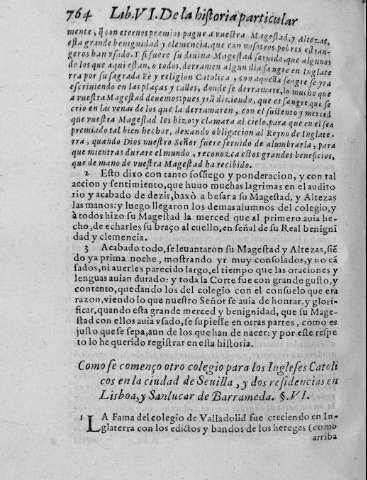 764 Lib. VI. De la historia particular
mente, q̃ con eternos premios pague a vuestra Magestad, y Altezas,
esta grande benignidad y clemencia, que con nosotros pobres estran-
geros han usado. Y si fuere su divina Magestad servido, que algunos
de los que aqui estan, o todos, derramen algun dia sangre en Inglate
rra por su sagrada Fè y religion Catolica, con aquesta sangre se yra
escriviendo en las plaças y calles, donde se derramare, lo mucho que
a vuestra Magestad devemos: pues yra diziendo, que es sangre que se
crio en las venas de los que la derramaren, con el sustento y merced
que vuestra Magestad les hizo: y clamara al cielo, para que en el sea
premiado tal bien hechor, dexando obligacion al Reyno de Inglate-
rra, quando Dios nuestro Señor fuere servido de alumbrarla, para
que mientras durare el mundo, reconozca estos grandes beneficios,
que de mano de vuestra Magestad ha recibido.
2 Esto dixo con tanto sossiego y ponderacion, y con tal
accion y sentimiento, que huuo muchas lagrimas en el audito
rio: y acabado de dezir, baxò a besar a su Magestad, y Altezas
las manos: y luego llegaron los demas alumnos del colegio, y
à todos hizo su Magestad la merced que al primero auia he-
cho, de echarles su braço al cuello, en señal de su Real benigni
dad y clemencia.
3 Acabado todo, se leuantaron su Magestad y Altezas, siẽ
do ya prima noche, mostrando yr muy consolados, y no cã
sados, ni auerles parecido largo, el tiempo que las oraciones y
lenguas auian durado: y toda la Corte fue con grande gusto, y
contento, quedando los del colegio con el consuelo que era
razon, viendo lo que nuestro Señor se auia de honrar, y glori-
ficar, quando esta grande merced y benignidad, que su Mage-
stad con ellos auia vsado, se supiesse en otras partes, como es
justo que se sepa, aun de los que han de nacer: y por este respe
to lo he querido registrar en esta historia.
Como se començo otro colegio para los Ingleses Catoli
cos en la ciudad de Seuilla, y dos residencias en
Lisboa, y Sanlucar de Barrameda. §. VI.
1 LA Fama del colegio de Valladolid fue creciendo en In-
glaterra con los edictos y bandos de los hereges (como
arriba